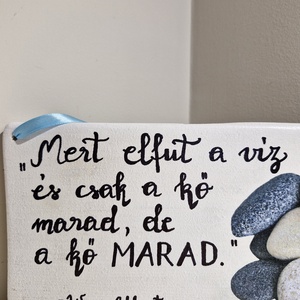 „Mert elfut a víz
és csak a kő
marad, de
a kő MARAD."